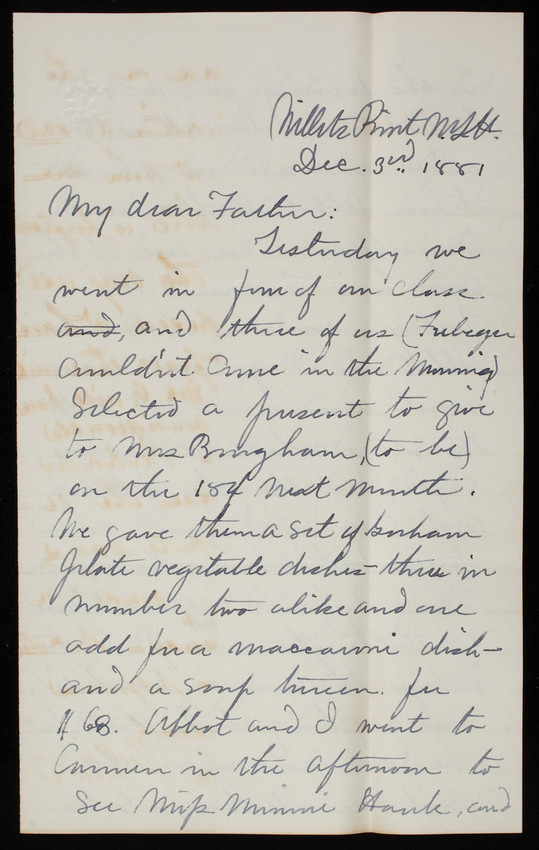 Willets Point N.Y.H.
Dec. 3rd. 1881
My dear Father:
Yesterday we
went in four of our class
and, and three of us (Fiebeger
couldn't come in the morning)
selected a present to give
to Mrs Bingham, (to be)
on the 15th next month.
We gave them a set of Gorham
plate vegetable dishes - three in
number two alike and one
odd for a maccaroni dish -
and a soup tureen. for
$ 68. Abbot and I went to
Carmen in the afternoon to
see Miss Minnie Hauk, and